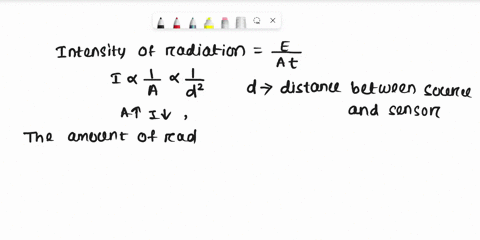 Intensity of radiation = E / At
I ∝ 1/A ∝ 1/d² d → distance between source
and sensor
A↑ I↓ ,
The amount of read